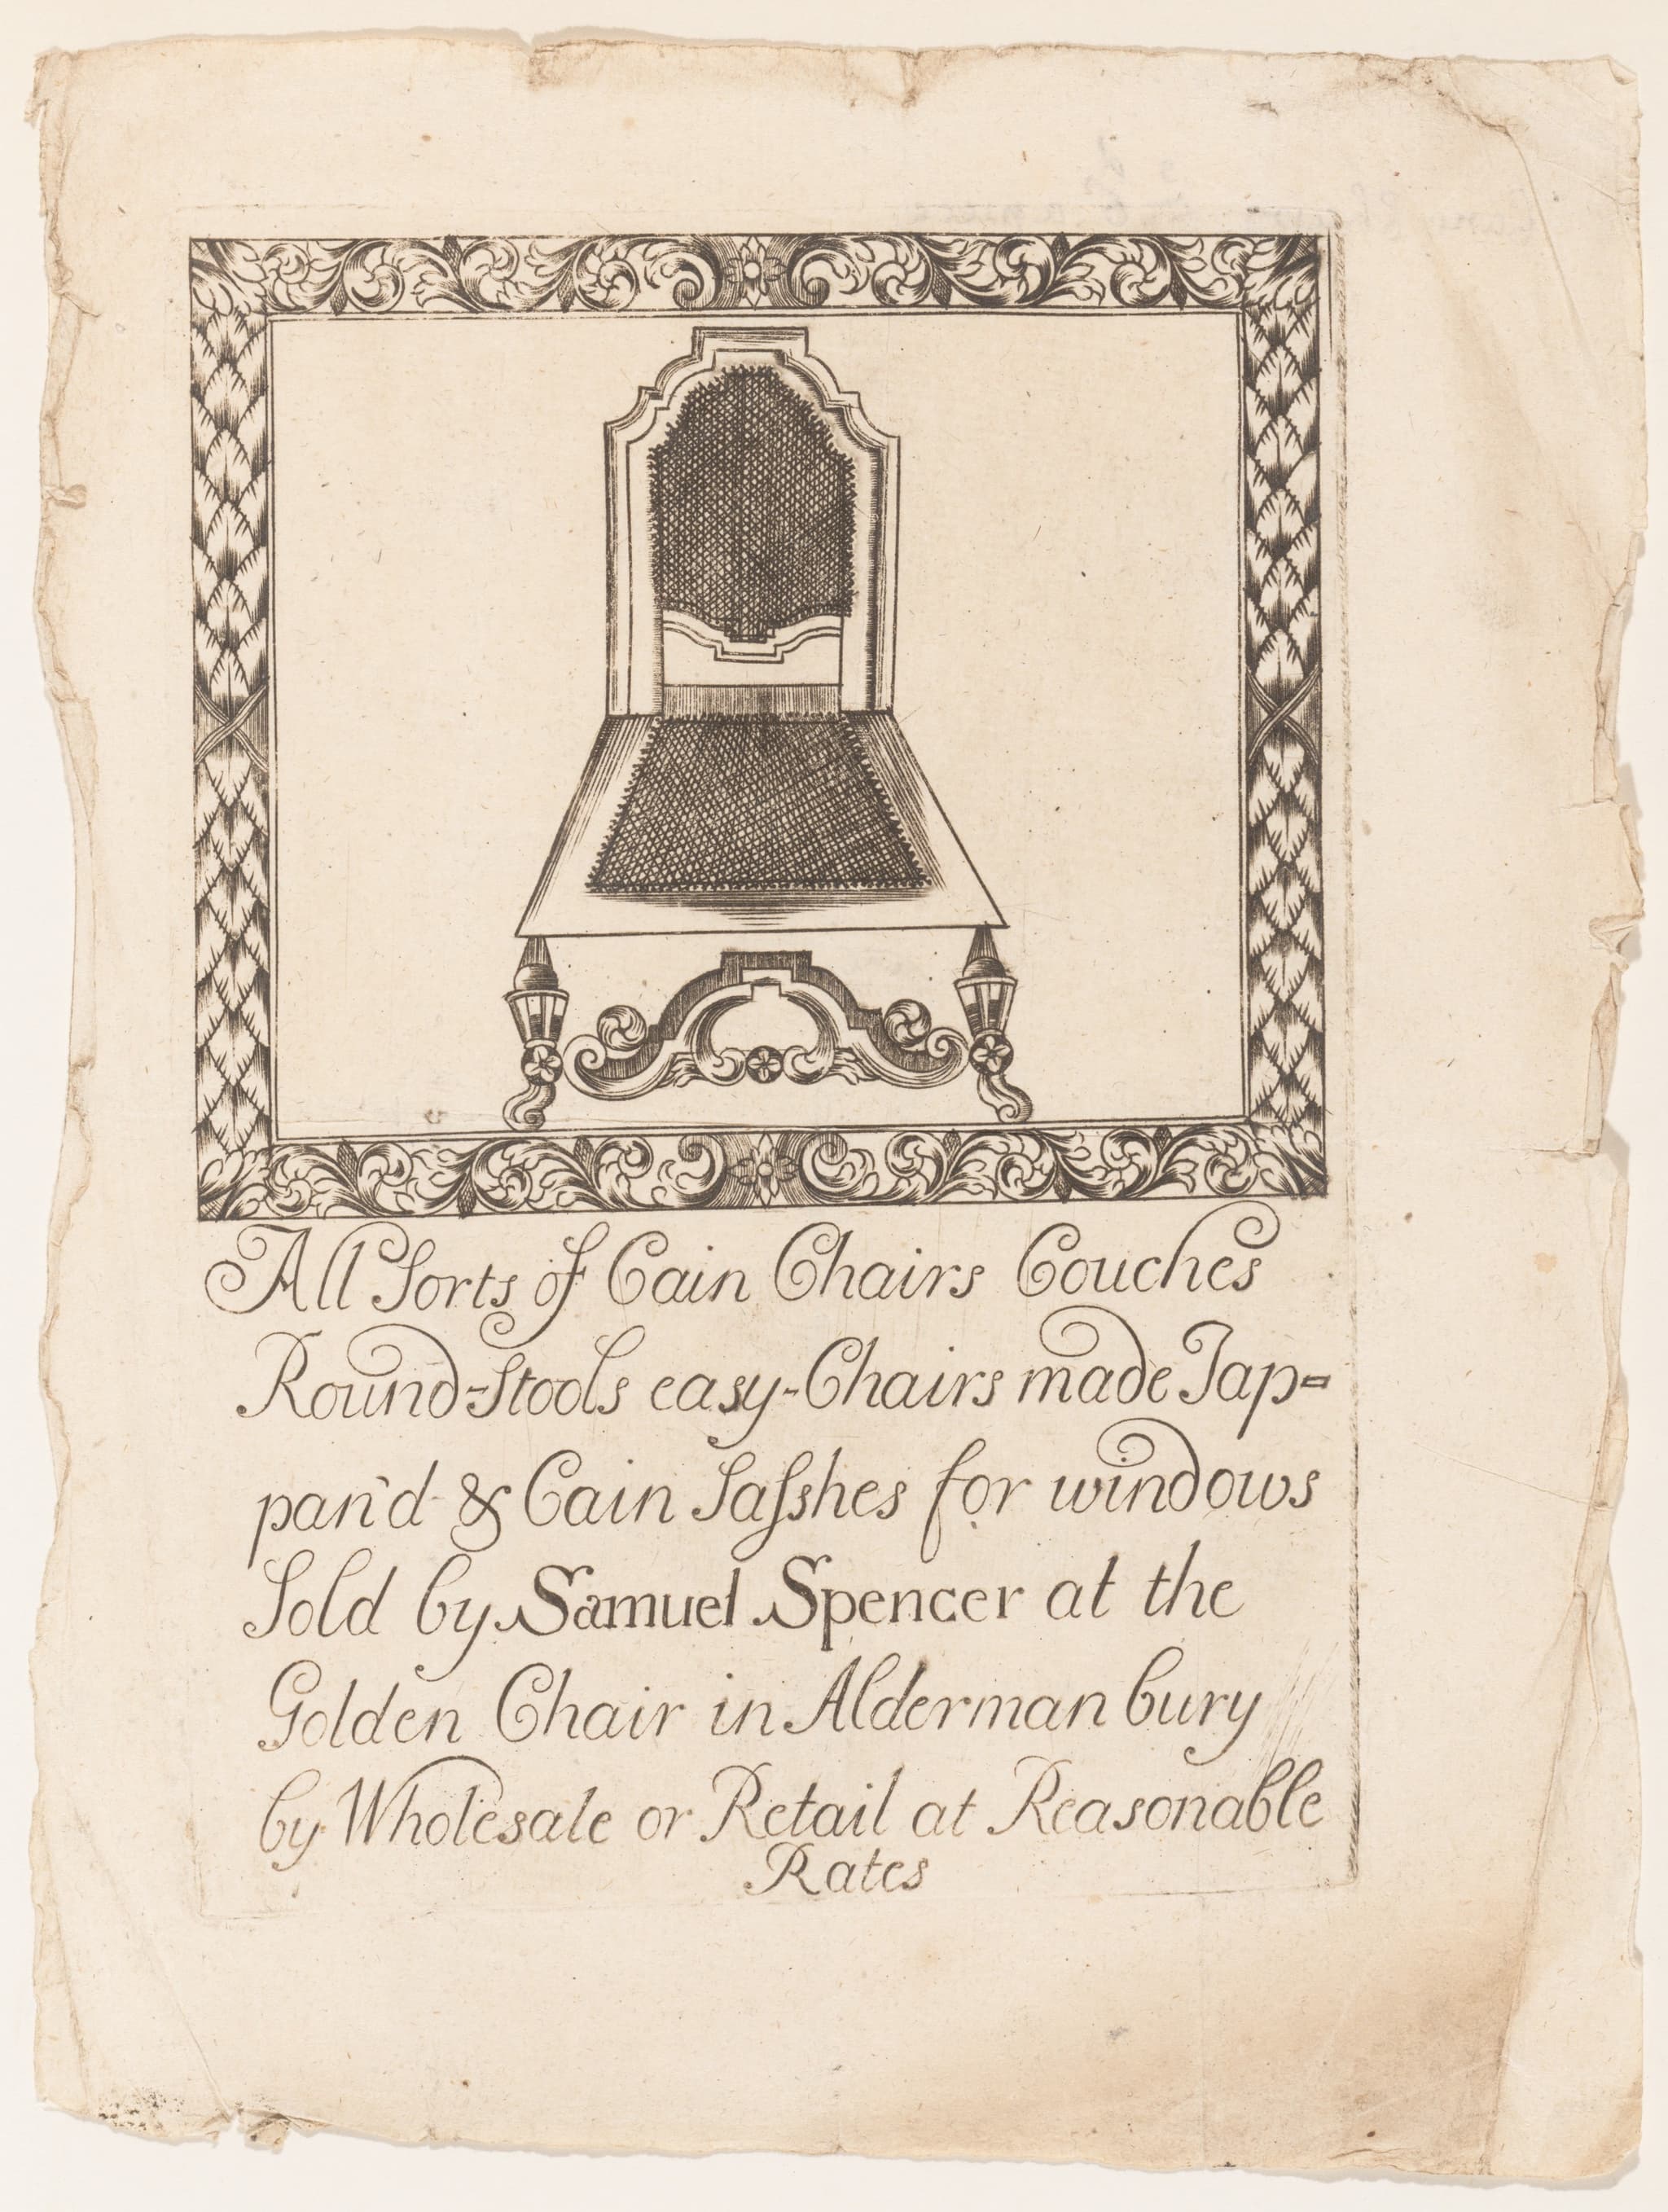 All Sorts of Cain Chairs Couches
Round-Stools easy-Chairs made Jap=
pan'd & Cain Saſshes for windows
Sold by Samuel Spencer at the
Golden Chair in Aldermanbury
by Wholesale or Retail at Reasonable
Rates